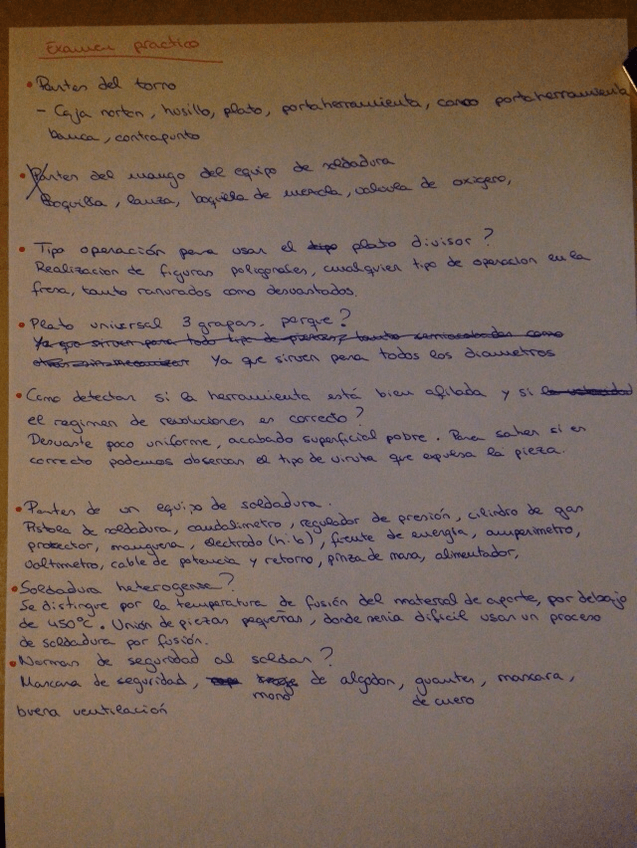 Examen practico
• Partes del torno
- Caja norton, husillo, plato, portaherramienta, carro portaherramienta
banca, contrapunto
• Partes del mango del equipo de soldadura
Boquilla, lanza, boquilla de mezcla, valvula de oxigero,
• Tipo operación para usar el plato divisor?
Realizacion de figuras poligonales, cualquier tipo de operacion en la
fresa, tanto ranurados como desvastados.
• Plato universal 3 grapas, porque?
Ya que sirven para todo tipo de piezas, tanto semiacabadas como
Ya que sirven para todos los diametros
• Como detectar si la herramienta está bien afilada y si la velocidad
el regimen de revoluciones es correcto?
Desvaste poco uniforme, acabado superficial pobre. Para saber si es
correcto podemos observar el tipo de viruta que expulsa la pieza.
• Partes de un equipo de soldadura.
Pistola de soldadura, caudalimetro, regulador de presión, cilindro de gas
protector, manguera, electrodo (hilo), fuente de energía, amperimetro,
voltimetro, cable de potencia y retorno, pinza de masa, alimentador,
• Soldadura heterogenea?
Se distingue por la temperatura de fusión del material de aporte, por debajo
de 450°C. Unión de piezas pequeñas, donde seria dificil usar un proceso
de soldadura por fusión.
• Normas de seguridad al soldar?
Mascara de seguridad, mono de algodon, guantes de cuero, mascara,
buena ventilación